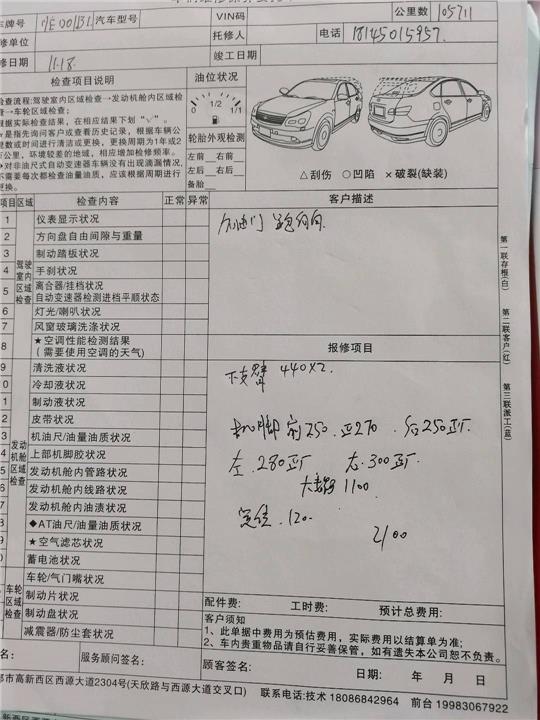 车牌号
汽车型号
VIN码
公里数 105711
修单位
托修人
电话 18145015957
修日期 11.18
竣工日期
检查项目说明
油位状况
检查流程:驾驶室内区域检查→发动机舱内区域检
查→车轮区域检查;
根据实际检查结果,在相应结果下划“√”。
★是指先询问客户或查看历史记录,根据车辆公
里数或时间进行清洁或更换,更换周期为1年或2
万公里,环境较差的地域,相应增加检修频率。
◆对非油尺式自动变速器车辆没有出现滴漏情况,
不需要每次都检查油量油质,应该根据周期进行
更换。
0 1/2 1/1
轮胎外观检测
左前 右前
左后 右后
备胎
△刮伤 ○凹陷 ×破裂(缺装)
项目 区域 检查内容 正常 异常
客户描述
驾驶室内区域检查
1 仪表显示状况
2 方向盘自由间隙与重量
3 制动踏板状况
4 手刹状况
5 离合器/挂档状况
自动变速器检测进档平顺状态
6 灯光/喇叭状况
7 风窗玻璃洗涤状况
8 ★空调性能检测结果
(需要使用空调的天气)
报修项目
下支臂 440X2.
机脚 前250. 后250
左.280 右.300
1100
120.
2100
发动机舱区域检查
9 清洗液状况
0 冷却液状况
1 制动液状况
2 皮带状况
3 机油尺/油量油质状况
4 上部机脚胶状况
5 发动机舱内管路状况
6 发动机舱内线路状况
7 发动机舱内油渍状况
8 ◆AT油尺/油量油质状况
9 ★空气滤芯状况
0 蓄电池状况
车轮区域检查
车轮/气门嘴状况
制动片状况
制动盘状况
减震器/防尘套状况
配件费: 工时费: 预计总费用:
客户须知
1、此单据中费用为预估费用,实际费用以结算单为准;
2、车内贵重物品请自行妥善保管,如有遗失本公司恕不负责。
服务顾问签名:
顾客签名:
日期: 年 月 日
都市高新西区西源大道2304号(天欣路与西源大道交叉口) 联系电话:技术 18086842964 前台 19983067922
第一联存根(白)
第二联客户(红)
第三联派工(蓝)